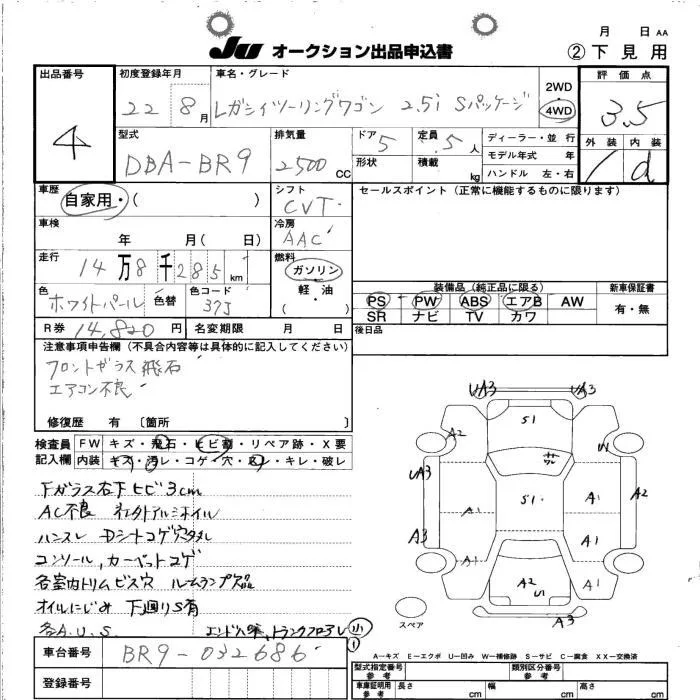 JU オークション出品申込書
月 日 AA
②下見用
出品番号
4
初度登録年月
22 8月
車名・グレード
Lガシイツーリングワゴン 2.5i Sパッケージ
2WD
4WD
評価点
3.5
外装 内装
d
型式
DBA-BR9
排気量
2500 CC
ドア 5
形状
定員 5人
積載 kg
ディーラー・並行
モデル年式 年
ハンドル 左・右
車歴
自家用・( )
シフト
CVT
セールスポイント (正常に機能するものに限ります)
車検
年 月( 日)
冷房
AAC
走行
14万8千285km
燃料
ガソリン
軽・油
( )
色
ホワイトパール
色替
色コード
375
装備品 (純正品に限る)
新車保証書
PS PW ABS エアB AW
SR ナビ TV カワ
有・無
R券 14,820円 名変期限 月 日
後日品
注意事項申告欄 (不具合内容等は具体的に記入してください)
フロントガラス飛石
エアコン不良
修復歴 有 〔箇所 〕
検査員記入欄
FW キズ・飛石・ヒビ割・リペア跡・X要
内装 キズ・汚レ・コゲ・穴・スレ・キレ・破レ
Fガラス右下ヒビ3cm
AC不良 社外アルミホイル
ハンスレ Dシートコゲ穴タオレ
コンソール,カーペットコゲ
各室内トリムビス穴 ルームランプ欠品
オイルにじみ 下廻りS有
各A.U.S.
車台番号 BR9-032686
登録番号
UA3 UA3
S1
A2 U1
UA3 A1 A2
S1
A3 A1 A1
A1 A1
A2 U1
A3
スペア
A-キズ E-エクボ U-凹み W-補修跡 S-サビ C-腐食 XX-交換済
型式指定番号 参考
類別区分番号 参考
車庫証明用 参考
長さ cm 幅 cm 高さ cm